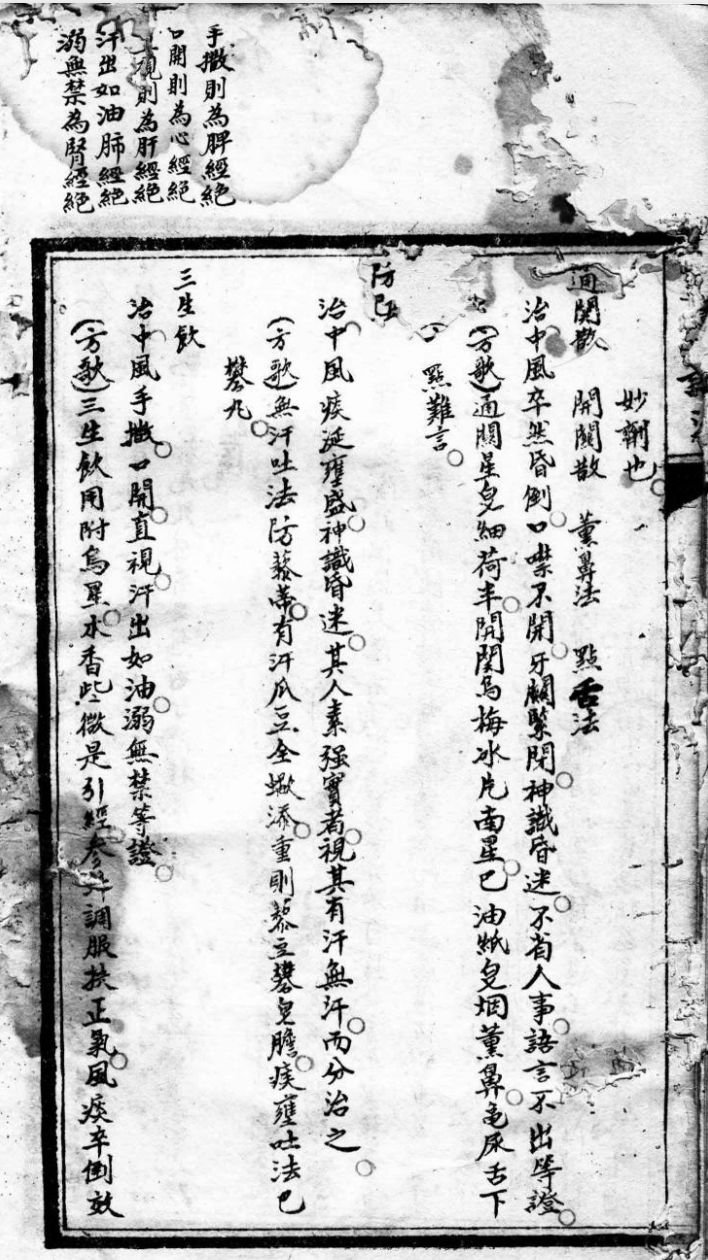 手撒則為脾經絕
口開則為心經絕
視則為肝經絕
汗出如油肺經絕
溺無禁為腎經絕
妙劑也
通關散 開關散 薰鼻法 點舌法
治中風卒然昏倒口噤不開牙關緊閉神識昏迷不省人事語言不出等證
(方歌)通關星皂細荷半開関烏梅冰片南星巴油紙皂烟薰鼻龟尿舌下
點難言
防己
治中風痰涎壅盛神識昏迷其人素强實者視其有汗無汗而分治之
(方歌)無汗吐法防藜蒂有汗瓜豆全蝎添重則藜豆礬皂膽痰壅吐法巴
礬丸
三生飲
治中風手撒口開直視汗出如油溺無禁等證
(方歌)三生飲用附烏星木香些微是引經參汁調服扶正氣風痰卒倒效